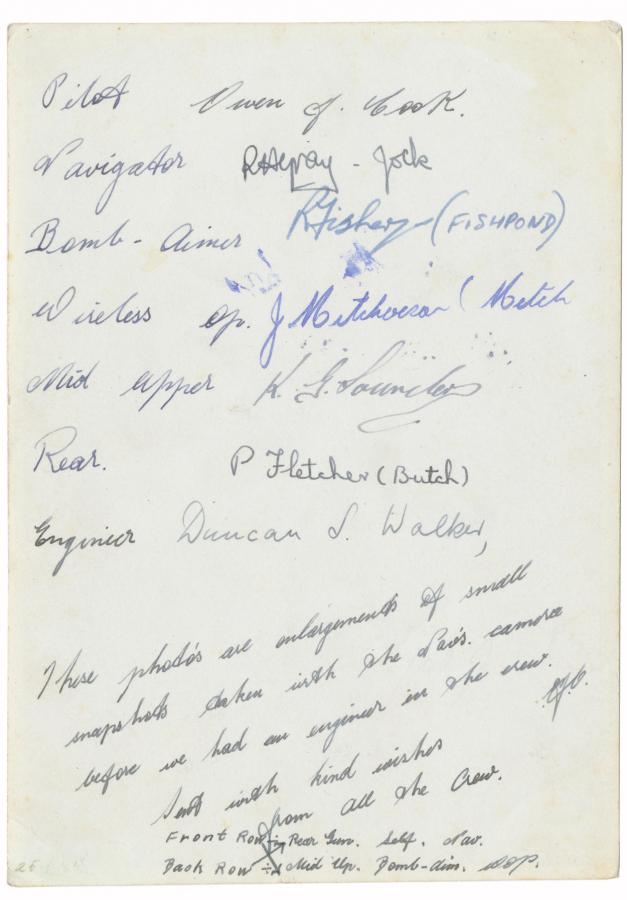 Pilot Owen J. Cook.
Navigator - Jock
Bomb-Aimer R Fisher - (FISHPOND)
Wireless Op. J (Mitch
Mid Upper K. G. Saunders
Rear. P Fletcher (Butch)
Engineer Duncan S. Walker,
These photo's are enlargements of small
snapshots taken with the Nav's. camera
before we had an engineer in the crew.
O.J.C.
Sent with kind wishes
from all the Crew.
Front Row :- Rear Gun. Self. Nav.
Back Row :- Mid Up. Bomb-aim. WOP.
26